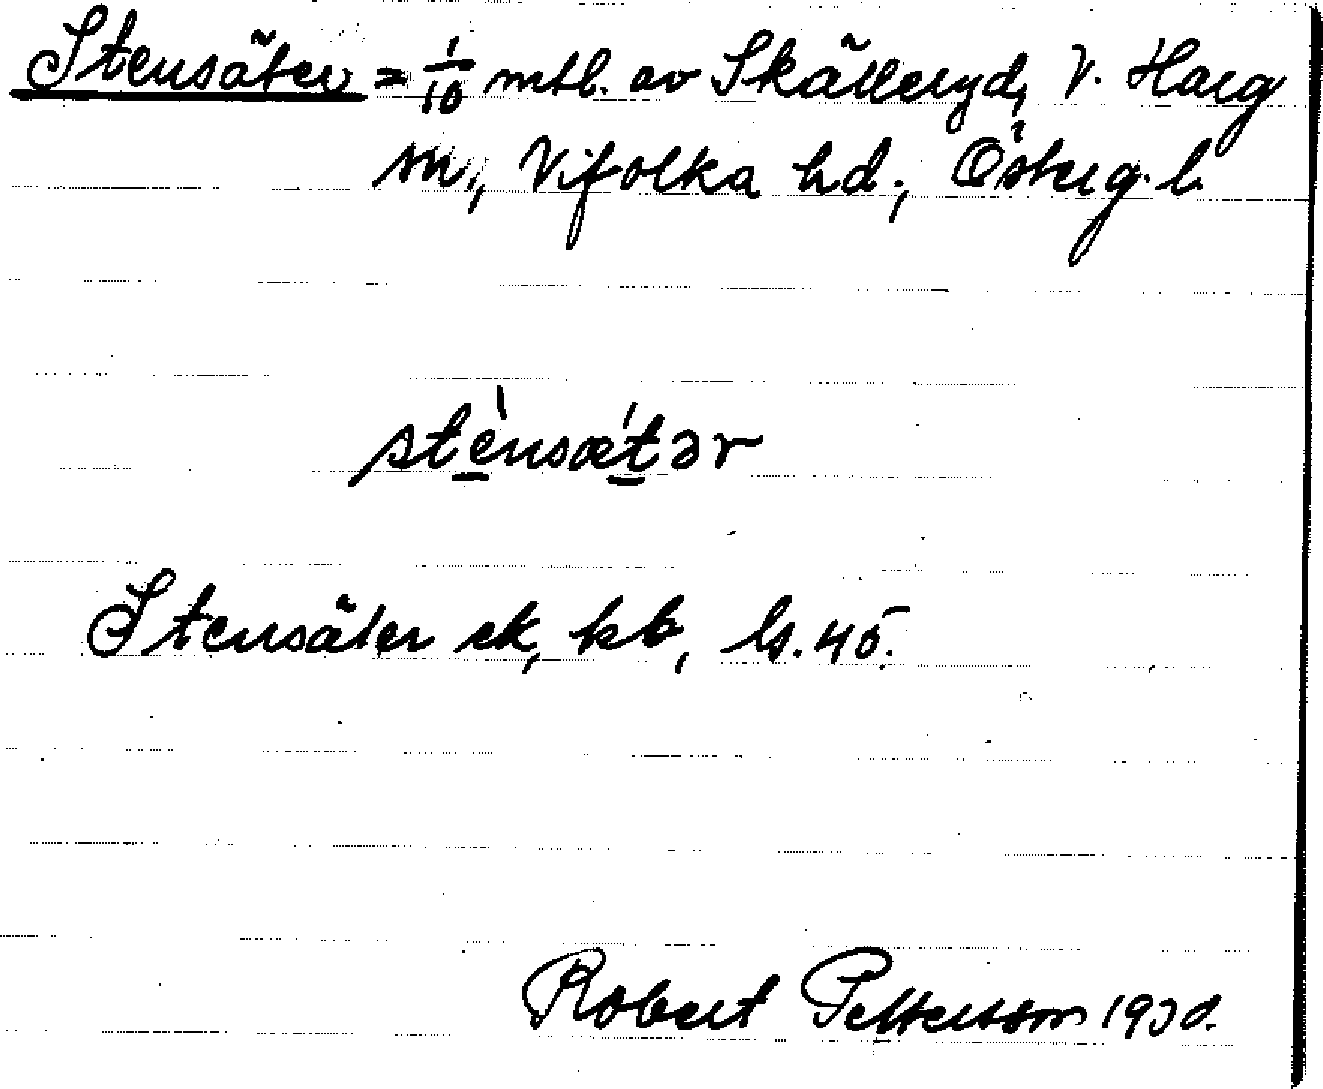 Stensäter = 1/10 mtl. av Skälleryd, V. Harg
sn, Vifolka hd., Österg. l.
stènsæ´tər
Stensäter ek, kb, ls. 45.
Robert Pettersson 1930.